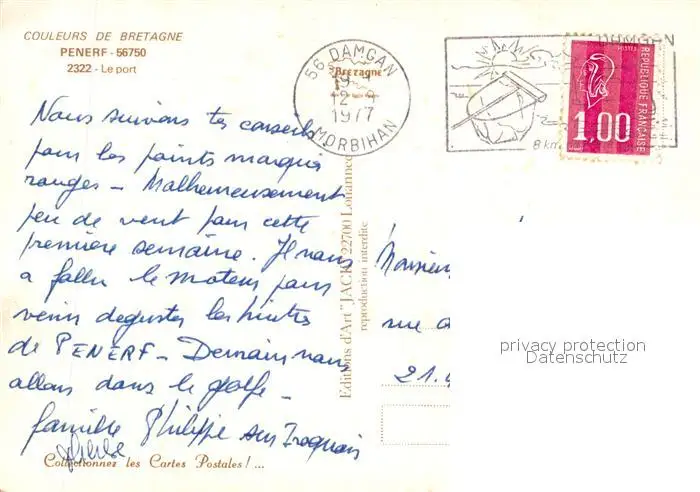 COULEURS DE BRETAGNE
PENERF - 56750
2322 - Le port
Bretagne
56 DAMGAN
19 H
12 - 9
1977
MORBIHAN
DAMGAN
8 km
POSTES
REPUBLIQUE FRANÇAISE
1,00
Nous suivons tes conseils
pour les points marqués
rouges - Malheureusement
peu de vent pour cette
première semaine. Il nous
a fallu le moteur pour
venir deguster les huitres
de PENERF - Demain nous
allons dans le golfe -
famille Philippe sur Iroquois
Collectionnez les Cartes Postales ! ...
Editions d'Art "JACK" 22700 Louannec
reproduction interdite
Monsieur
rue
21.
privacy protection
Datenschutz